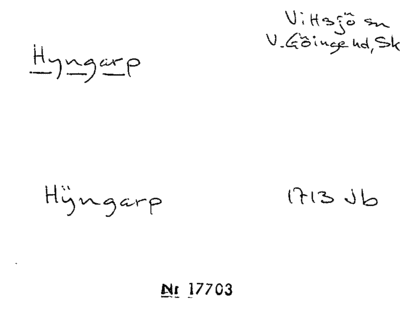 Hyngarp
Vittsjö sn
V. Göinge hd, Sk
Hÿngarp
1713 Jb
Nr 17703